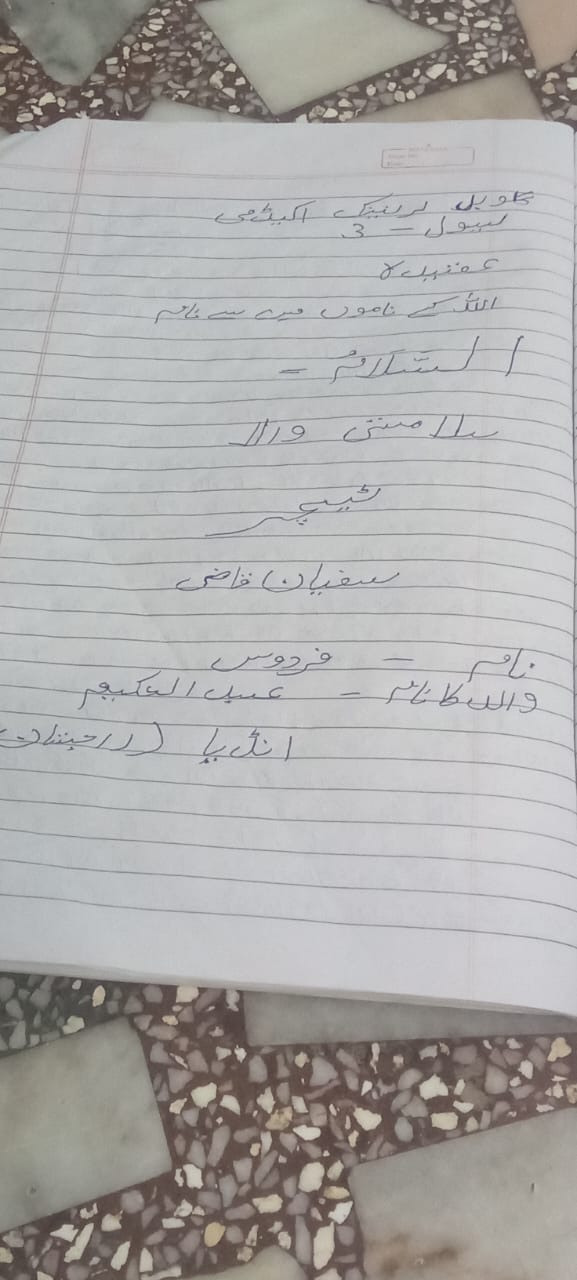 گلوبل لرننگ اکیڈمی
لیول - 3
عقیدہ
اللہ کے ناموں میں سے نام
السَّلَامُ -
سلامتی والا
ٹیچر
سفیان قاضی
نام - فردوس
والد کا نام - عبدالحکیم
انڈیا (راجستان